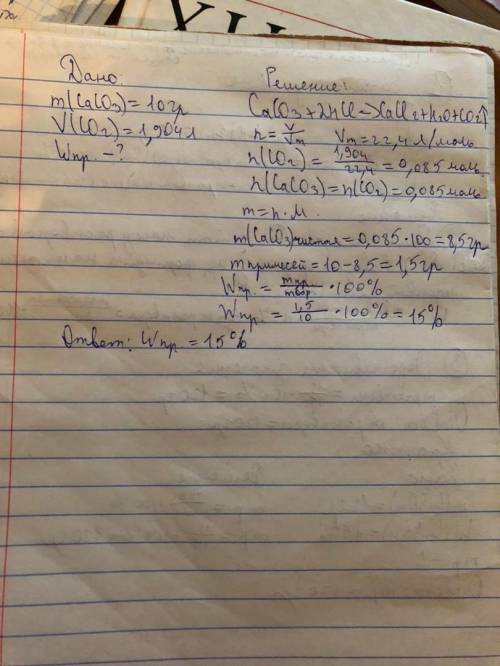 Дано:
m(CaCO3)=10гр
V(CO2)=1,904л
Wпр. -?
Решение:
CaCO3+2HCl=>CaCl2+H2O+CO2↑
n=V/Vm Vm=22,4 л/моль
n(CO2)=1,904/22,4=0,085моль
n(CaCO3)=n(CO2)=0,085моль
m=n·M.
m(CaCO3)чистая=0,085·100=8,5гр
mпримесей=10-8,5=1,5гр
Wпр.=mпр/mобр.·100%
Wпр.=1,5/10·100%=15%
Ответ: Wпр.=15%